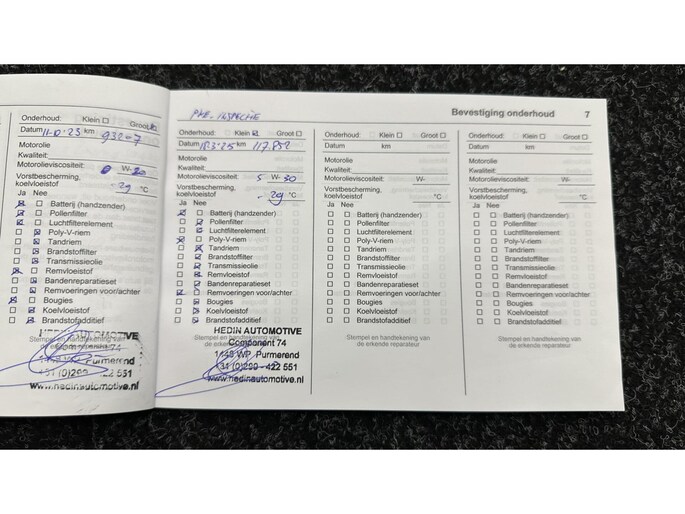 Onderhoud: Klein Groot
Datum 11-10-23 km
Motorolie
Kwaliteit:
Motorolieviscositeit: 0 W-20
Vorstbescherming,
koelvloeistof -29 °C
Ja Nee
Batterij (handzender)
Pollenfilter
Luchtfilterelement
Poly-V-riem
Tandriem
Brandstoffilter
Transmissieolie
Remvloeistof
Bandenreparatieset
Remvoeringen voor/achter
Bougies
Koelvloeistof
Brandstofadditief
HEDIN AUTOMOTIVE
Purmerend
+31 (0)299 - 422 551
www.hedinautomotive.nl
Bevestiging onderhoud 7
Onderhoud: Klein Groot
Datum 18.3.25 km 117.852
Motorolie
Kwaliteit:
Motorolieviscositeit: 5 W-30
Vorstbescherming,
koelvloeistof -29 °C
Ja Nee
Batterij (handzender)
Pollenfilter
Luchtfilterelement
Poly-V-riem
Tandriem
Brandstoffilter
Transmissieolie
Remvloeistof
Bandenreparatieset
Remvoeringen voor/achter
Bougies
Koelvloeistof
Brandstofadditief
HEDIN AUTOMOTIVE
Component 74
1446 WP Purmerend
+31 (0)299 - 422 551
www.hedinautomotive.nl
Onderhoud: Klein Groot
Datum km
Motorolie
Kwaliteit:
Motorolieviscositeit: W-
Vorstbescherming,
koelvloeistof °C
Ja Nee
Batterij (handzender)
Pollenfilter
Luchtfilterelement
Poly-V-riem
Tandriem
Brandstoffilter
Transmissieolie
Remvloeistof
Bandenreparatieset
Remvoeringen voor/achter
Bougies
Koelvloeistof
Brandstofadditief
Stempel en handtekening van
de erkende reparateur
Onderhoud: Klein Groot
Datum km
Motorolie
Kwaliteit:
Motorolieviscositeit: W-
Vorstbescherming,
koelvloeistof °C
Ja Nee
Batterij (handzender)
Pollenfilter
Luchtfilterelement
Poly-V-riem
Tandriem
Brandstoffilter
Transmissieolie
Remvloeistof
Bandenreparatieset
Remvoeringen voor/achter
Bougies
Koelvloeistof
Brandstofadditief
Stempel en handtekening van
de erkende reparateur